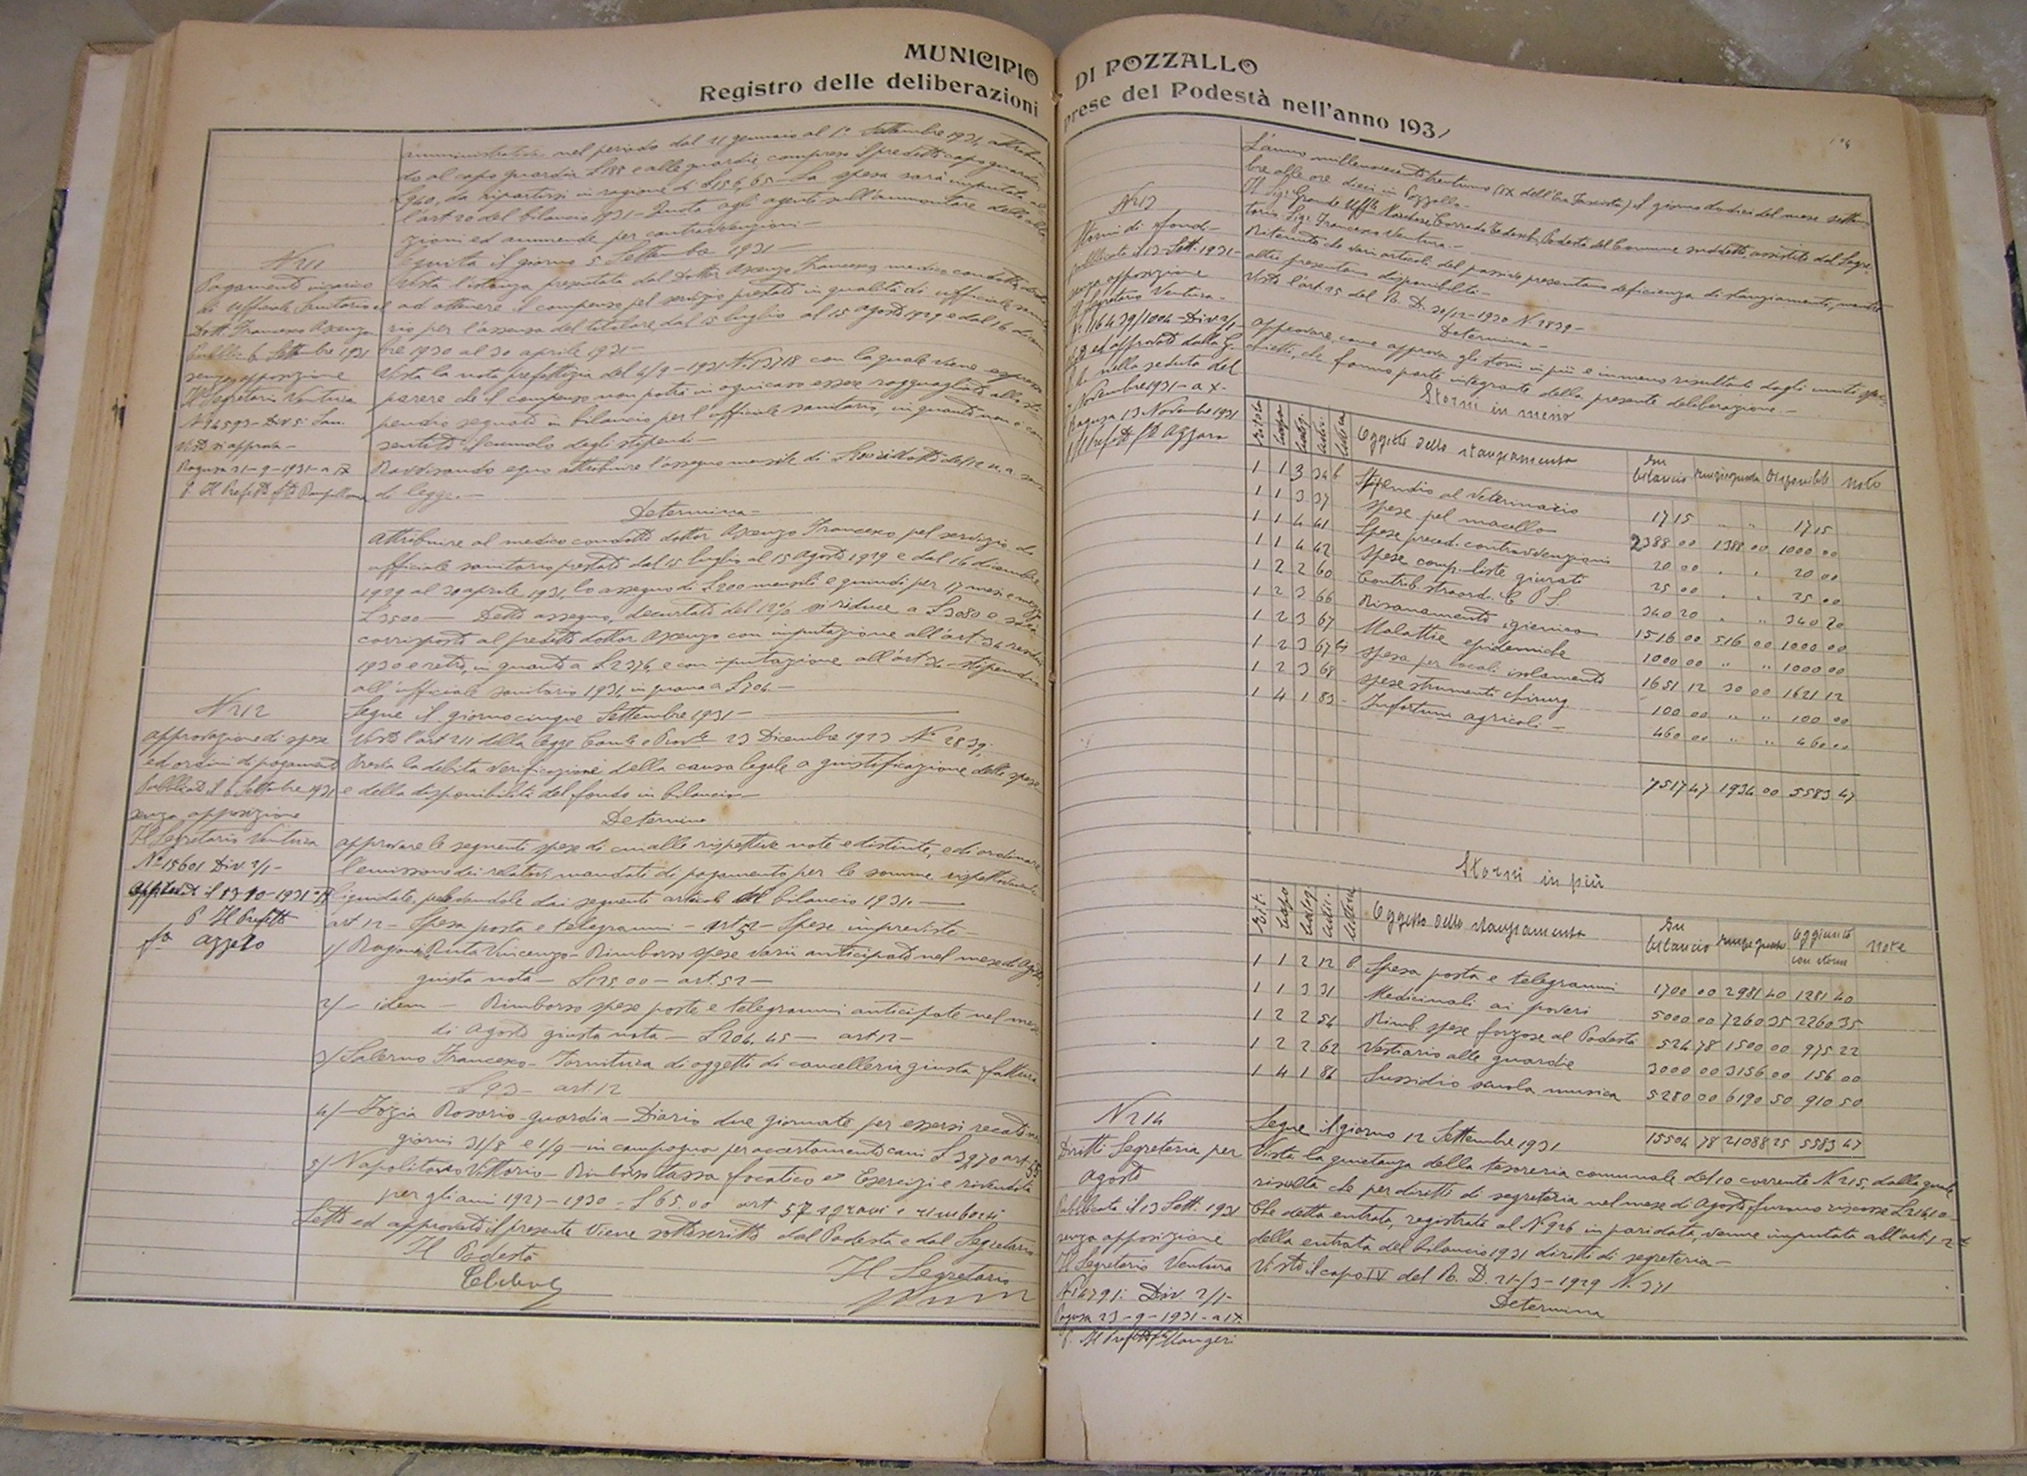 MUNICIPIO
Registro delle deliberazioni
amministrativa nel periodo dal 21 gennaio al 1° Settembre 1931,
do al capo guardia £ 188 e alle guardie compreso il predetto capo guardia
£ 940, da ripartirsi in ragione di £ 156,65 - La spesa sarà imputata
l'art 20 del bilancio 1931 - Quota agli agenti sull'ammontare delle
zioni ed ammende per contravvenzioni -
N 211
Pagamento incarico
di Ufficiale Sanitario al
Dott. Francesco
Pubbl. 6 Settembre 1931
senza opposizione
Il Segretario Ventura
N 24593 - Div 5 San.
Visto si approva -
Ragusa 21-9-1931 - a IX
p. Il Prefetto
Seguita il giorno 5 Settembre 1931 -
Vista l'istanza presentata dal Dottor Francesco medico condotto,
ad ottenere il compenso pel servizio prestato in qualità di ufficiale
rio per l'assenza del titolare dal 15 luglio al 15 agosto 1929 e dal 16
bre 1930 al 30 aprile 1931 -
Vista la nota prefettizia del 4/9-1931 N. 13718 con la quale viene espresso
parere che il compenso non potrà in ogni caso essere ragguagliato allo sti
pendio segnato in bilancio per l'ufficiale sanitario, in quanto non è con
sentito il cumulo degli stipendi -
Ravvisando equo attribuire l'assegno mensile di £ 200 ridotto del 12 %
di legge. -
Determina -
Attribuire al medico condotto dottor Francesco, pel servizio di
ufficiale sanitario prestato dal 15 luglio al 15 agosto 1929 e dal 16 dicembre
1929 al 30 aprile 1931, lo assegno di £ 200 mensili e quindi per 17 mesi e mezzo
£ 3500 - Detto assegno, decurtato del 12% si riduce a £ 3080 e sarà
corrisposto al predetto dottor con imputazione all'art. 34 residui
1930 e retro, in quanto a £ 2376 e con imputazione all'art 34 - stipendio
all'ufficiale sanitario 1931, in quanto a £ 704 -
N 212
approvazione di spese
ed ordini di pagamento
Pubblicato il 6 Settembre 1931
senza opposizione
Il Segretario Ventura
N° 15601 Div 2/1 -
Approvato il 13-10-1931 - IX
p. Il Prefetto
fto Azzaro
Segue il giorno cinque Settembre 1931 -
Visto l'art 211 della legge Com.le e Prov.le 23 Dicembre 1923 N° 2839;
Presta la debita verificazione della causa legale a giustificazione delle spese
e della disponibilità del fondo in bilancio -
Determina
approvare le seguenti spese di cui alle rispettive note e distinte, e di ordinare
l'emissione dei relativi mandati di pagamento per le somme rispettivamente
liquidate, prelevandole dai seguenti articoli del bilancio 1931. -
art 12 - Spesa posta e telegrammi - art 52 - Spese impreviste -
1/ Ragona Ruta Vincenzo - Rimborso spese varie anticipate nel mese di Agosto
giusta nota - £ 125.00 - art. 52 -
2/ - idem - Rimborso spese poste e telegrammi anticipate nel mese
di Agosto giusta nota - £ 204.45 - art 12 -
3/ Salerno Francesco - Fornitura di oggetti di cancelleria giusta fattura
£ 93 - art 12
4/ - Rosario guardia - Diaria due giornate per essersi recato nei
giorni 31/8 e 1/9 - in campagna per accertamento cani £ 39,70 art 55
5/ Napolitano Vittorio - Rimborso tassa focatico e Esercizi e rivendite
per gli anni 1927-1930 - £ 65.00 art 57 sgravi e rimborsi
Letto ed approvato il presente viene sottoscritto dal Podestà e dal Segretario
Il Podestà
Il Segretario
DI POZZALLO
prese del Podestà nell'anno 1931
N 213
Storni di fondi -
Pubblicato il 13 Sett. 1931 -
senza opposizione
Il Segretario Ventura -
N. 16439/1004 - Div 2/1 -
Visto ed approvato dalla G.
P. A. nella seduta del
Novembre 1931 - a X -
Ragusa 13 Novembre 1931
p. Il Prefetto fto Azzaro
L'anno millenovecentotrentuno (IX dell'Era Fascista) il giorno dodici del mese settem
bre alle ore dieci in Pozzallo -
Il Sig. Grande Uff.le Marchese Corrado Tedeschi, Podestà del Comune suddetto, assistito dal Segre
tario Sig. Francesco Ventura. -
Ritenuto che vari articoli del passivo presentano deficienza di stanziamento, mentre
altri presentano disponibilità -
Visto l'art. 25 del R. D. 30/12-1930 N. 2839 -
Determina -
approvare come approva gli storni in più e in meno risultanti dagli uniti spec
chietti, che fanno parte integrante della presente deliberazione. -
Storni in meno
Titolo Capo Categ. Artic. Lettera Oggetto dello stanziamento In bilancio Disponibile Note
1 1 3 34 b Stipendio al Veterinario 1715 " " 1715
1 1 3 37 Spese pel macello 2388 00 1388 00 1000 00
1 1 4 41 Spese preced. contravvenzioni 20 00 " " 20 00
1 1 4 42 Spese comp. liste giurati 25 00 " " 25 00
1 2 2 60 Contrib. straord. C P S 340 20 " " 340 20
1 2 3 66 Risanamento igienico 1516 00 516 00 1000 00
1 2 3 67 Malattie epidemiche 1000 00 " " 1000 00
1 2 3 67 bis Spesa per locali isolamento 1651 12 30 00 1621 12
1 2 3 68 Spese strumenti chirurg. 100 00 " " 100 00
1 4 1 83 - Infortuni agricoli - 460 00 " " 460 00
7517 47 1934 00 5583 47
Storni in più
Tit. Capo Categ. Artic. Lettera Oggetto dello stanziamento In bilancio Aggiunto con storno Note
1 1 2 12 b Spesa posta e telegrammi 1700 00 2981 40 1281 40
1 1 3 31 Medicinali ai poveri 5000 00 7260 35 2260 35
1 2 2 54 Rimb. spese forzose al Podestà 524 78 1500 00 975 22
1 2 2 62 Vestiario alle guardie 3000 00 3156 00 156 00
1 4 1 86 Sussidio scuola musica 5280 00 6190 50 910 50
15504 78 21088 25 5583 47
N 214
Diritti Segreteria per
Agosto
Pubblicata il 13 Sett. 1931
senza opposizione
Il Segretario Ventura
N 14791: Div. 2/1 -
Ragusa 23-9-1931 - a IX
p. Il Prefetto
Segue il giorno 12 Settembre 1931
Vista la quietanza della tesoreria comunale del 10 corrente N. 215, dalla quale
risulta che per diritti di segreteria nel mese di Agosto furono riscosse £ 216,10 -
Che detta entrata, registrata al N° 926 in pari data, venne imputata all'art.
della entrata del bilancio 1931 diritti di segreteria -
Visto il capo IV del R. D. 21-/3-1929 N. 371
Determina